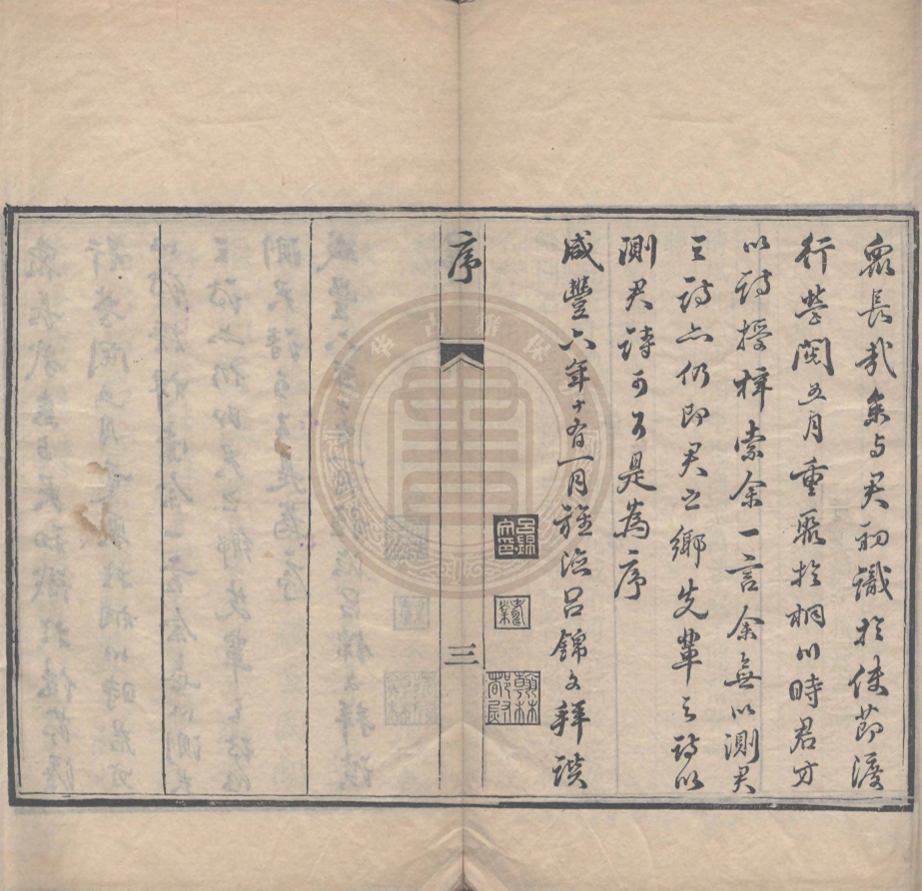 衆長哉余与君初識於使節濅
行營閏五月重聚於桐川時君方
以詩授梓索余一言余無以測君
之詩亦仍即君之鄉先輩之詩以
測君詩可了是為序
咸豐六年十有一月旌德呂錦文拜譔
呂錦文印
翰林
序
三